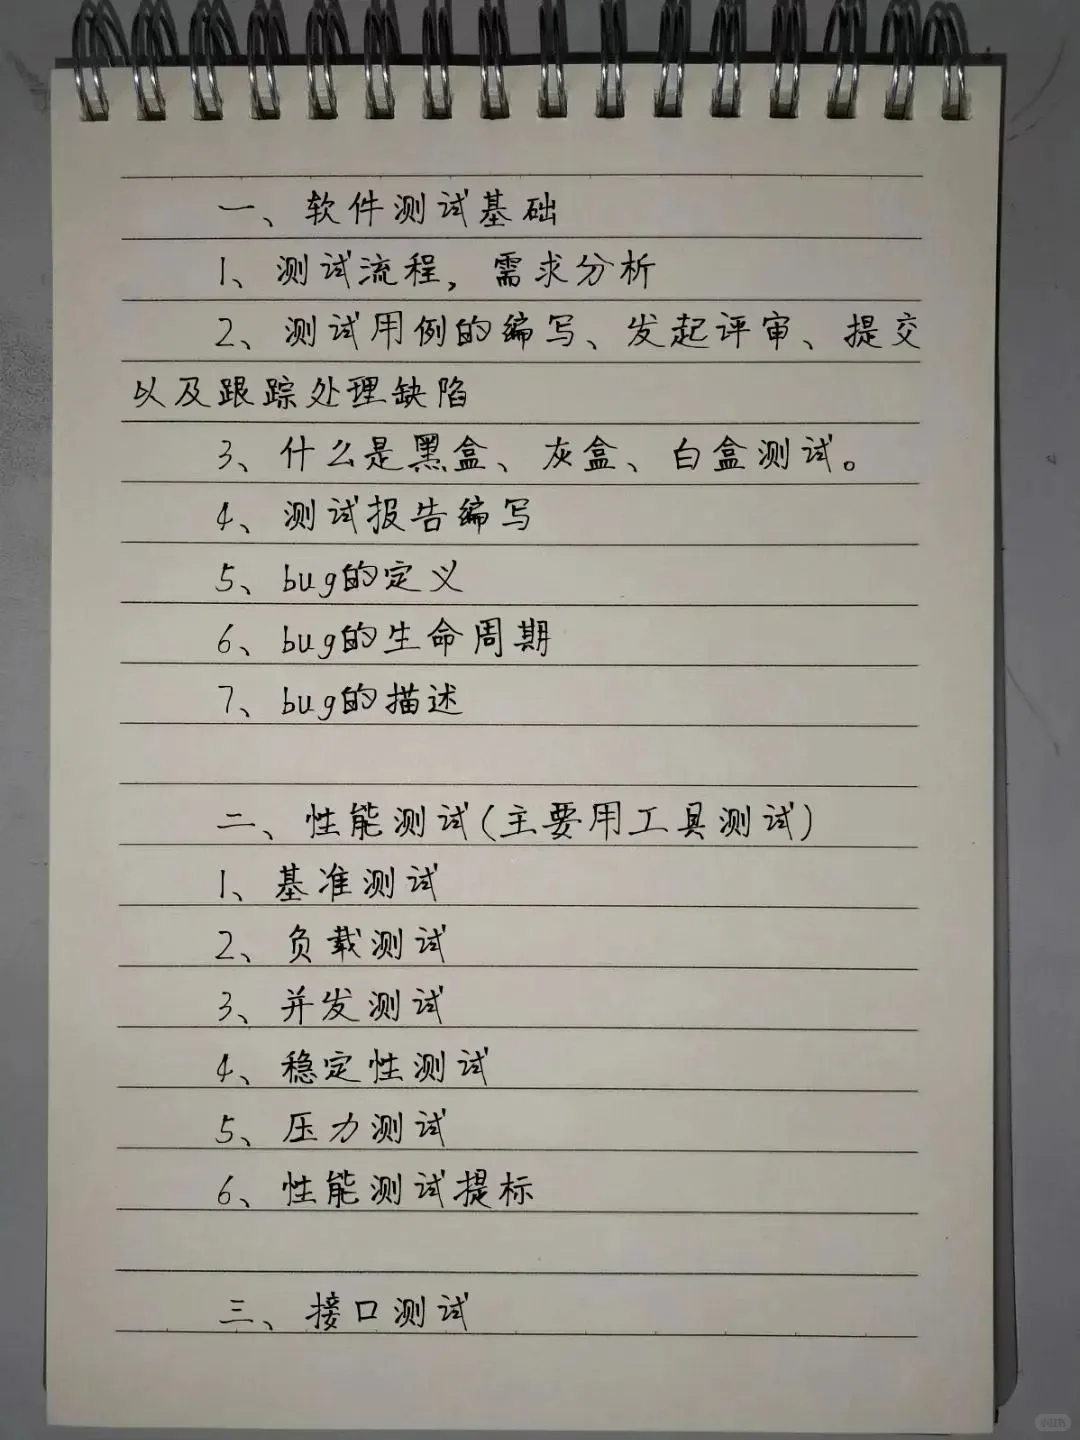 一、软件测试基础
1、测试流程，需求分析
2、测试用例的编写、发起评审、提交
以及跟踪处理缺陷
3、什么是黑盒、灰盒、白盒测试。
4、测试报告编写
5、bug的定义
6、bug的生命周期
7、bug的描述
二、性能测试(主要用工具测试)
1、基准测试
2、负载测试
3、并发测试
4、稳定性测试
5、压力测试
6、性能测试提标
三、接口测试
小红书